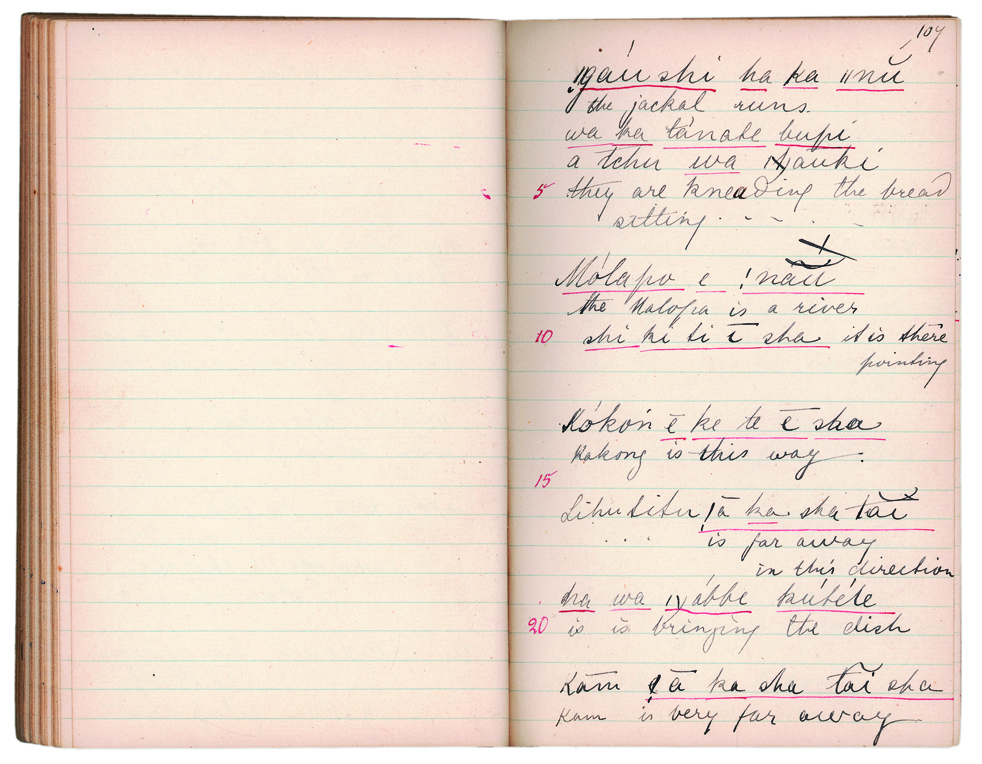 107
!gáu shi ha ka ǁnŭ
the jackal runs.
wa ka tánate bupi
a tchu wa áuki
5 they are kneading the bread
sitting
Mólapo e !nău
the Malopa is a river
10 shi ki ti ē sha it is there
pointing
Kókoń ē ke te ē sha
Kakong is this way.
15
Lihutitu ā ka sha tăi
is far away
in this direction
ha wa ábbe kútéte
20 is is bringing the dish
Kām ā ka sha tăi sha
Kam is very far away